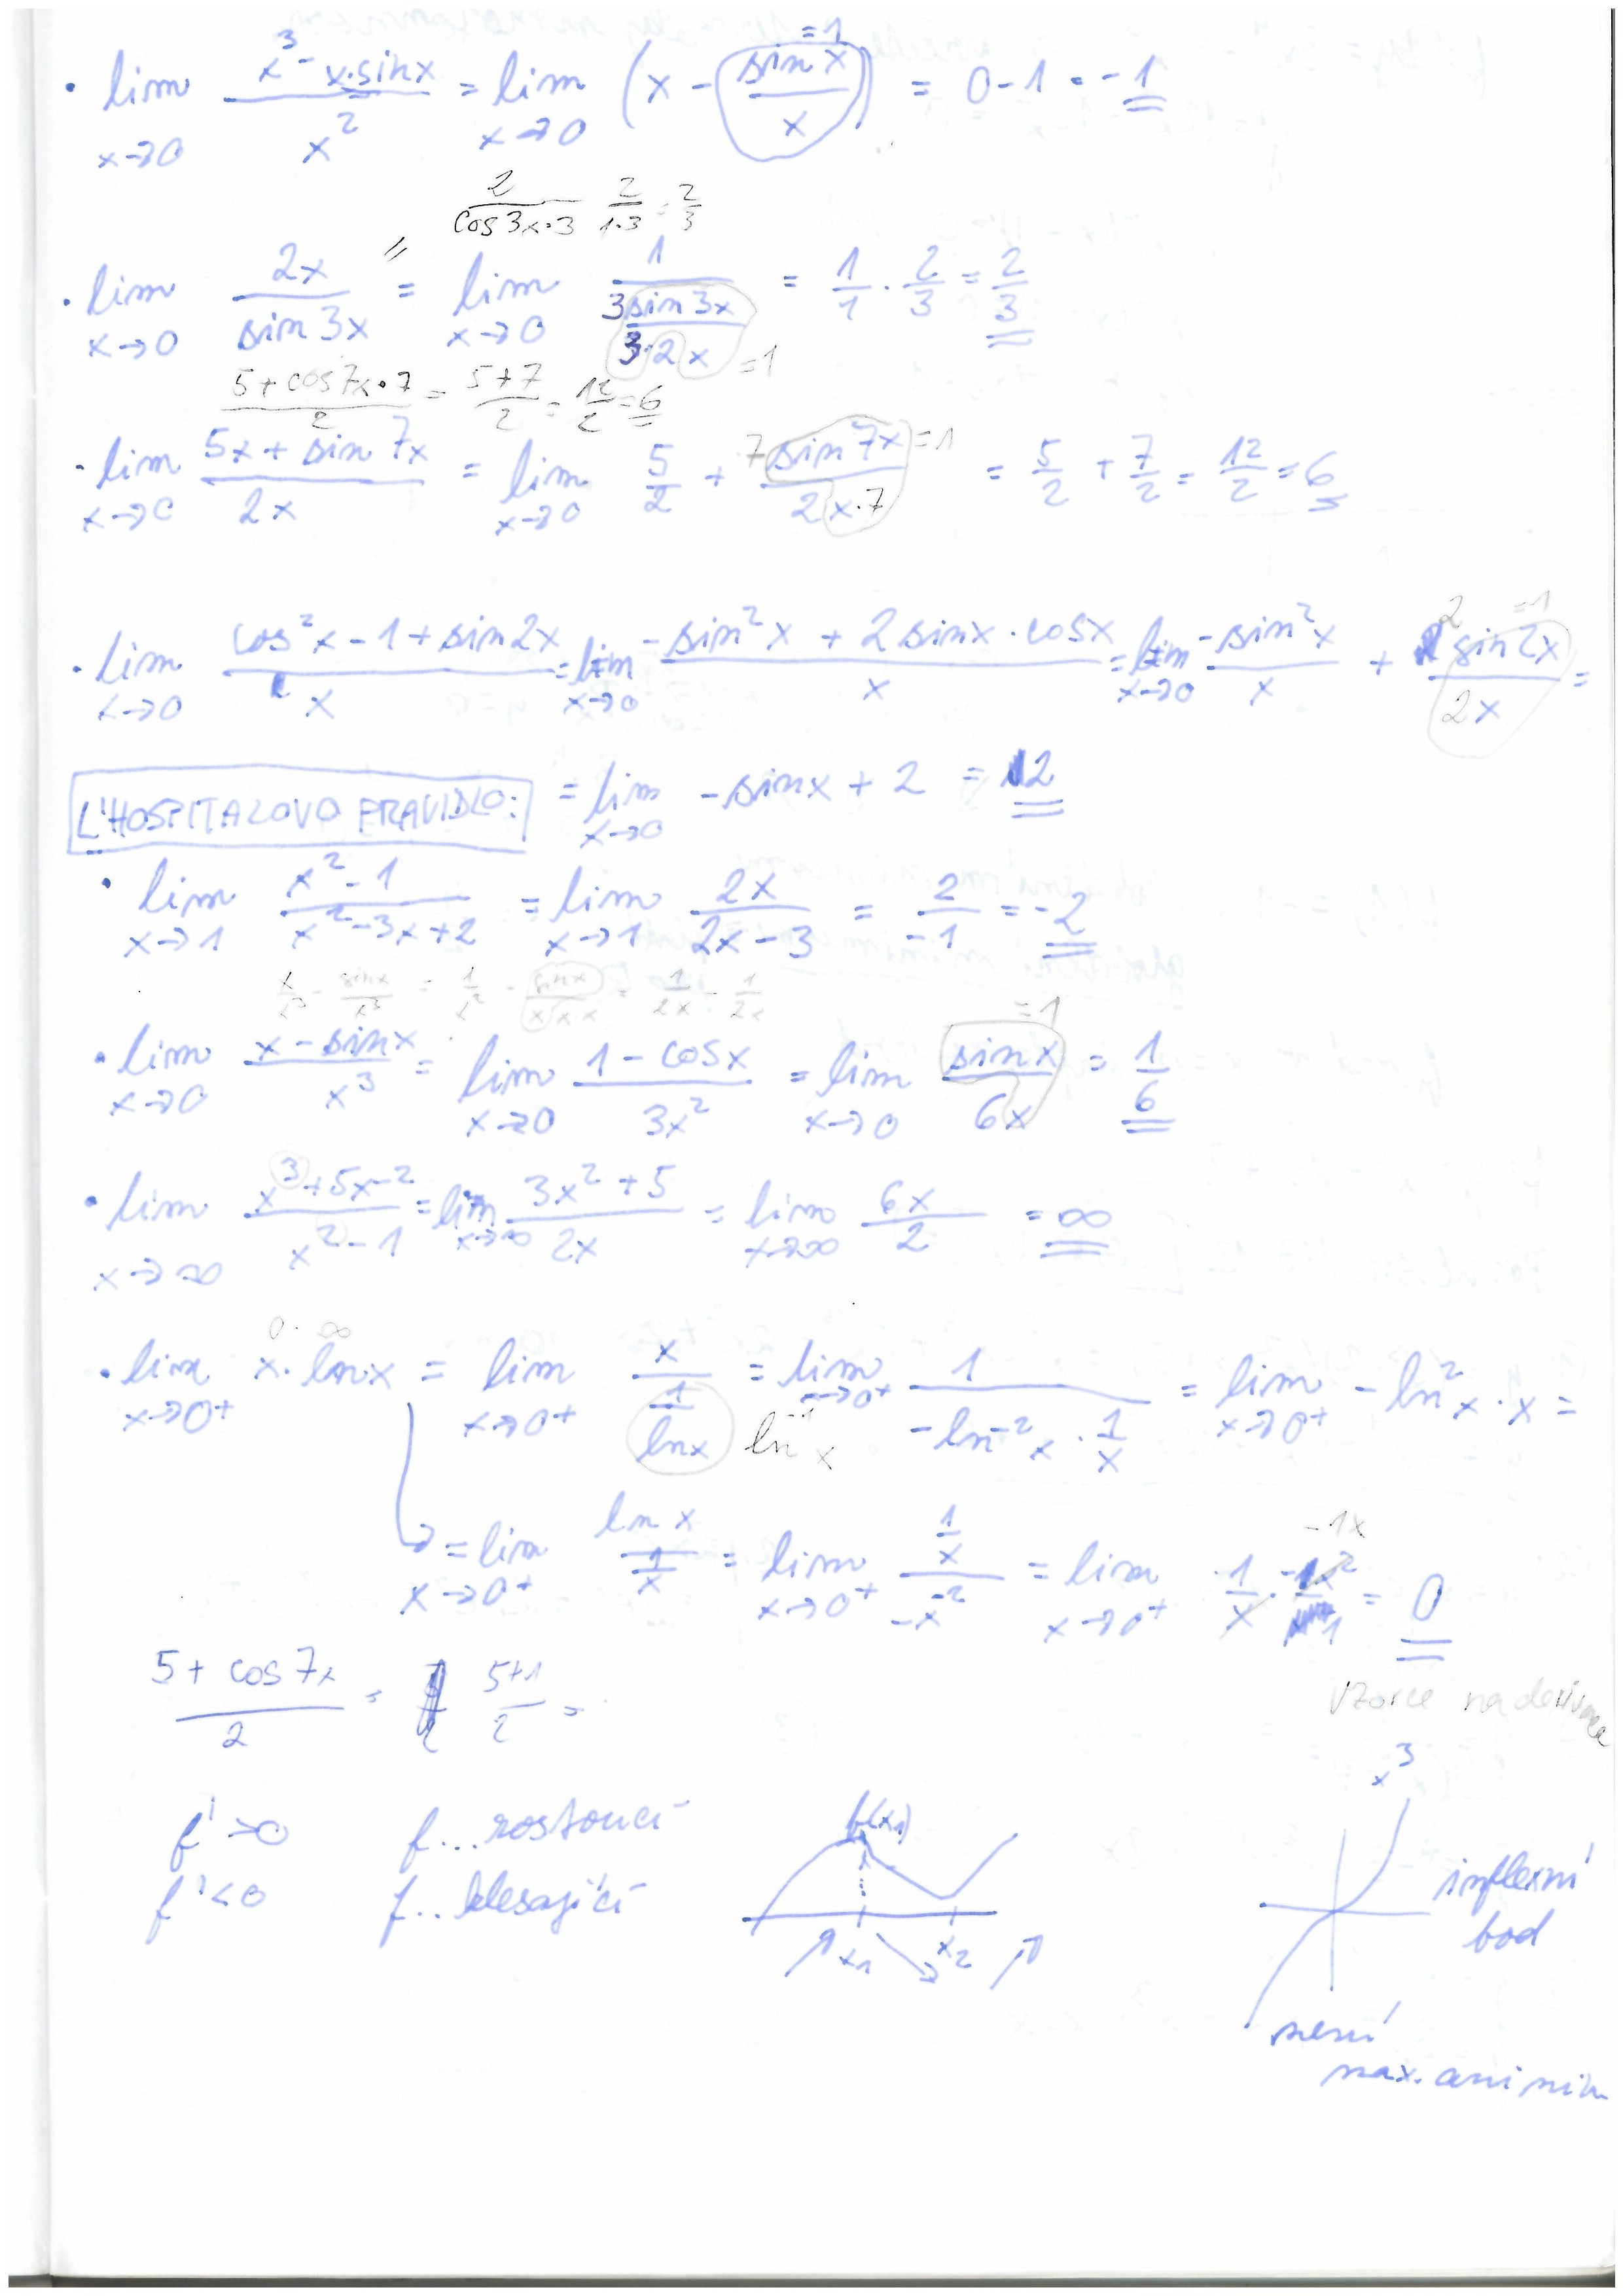 • lim x→0 (x³ - x·sinx)/x² = lim x→0 (x - sin x/x) = 0 - 1 = -1
=1
2/(cos3x·3) 2/(1·3) = 2/3
=
• lim x→0 2x/sin3x = lim x→0 1/(3 sin3x/(3·2x)) = 1/1 · 2/3 = 2/3
=1
(5+cos7x·7)/2 = (5+7)/2 = 12/2 = 6
• lim x→0 (5x + sin 7x)/2x = lim x→0 5/2 + 7 sin7x/(2x·7) = 5/2 + 7/2 = 12/2 = 6
=1
• lim x→0 (cos²x - 1 + sin2x)/x = lim x→0 (-sin²x + 2 sinx·cosx)/x = lim x→0 -sin²x/x + 2 sin2x/2x =
=1
= lim x→0 -sinx + 2 = 2
L'HOSPITALOVO PRAVIDLO:
• lim x→1 (x² - 1)/(x² - 3x + 2) = lim x→1 2x/(2x - 3) = 2/-1 = -2
x/x³ - sinx/x³ = 1/x² - sinx/(x·x·x) = 1/2x - 1/2x
• lim x→0 (x - sinx)/x³ = lim x→0 (1 - cosx)/3x² = lim x→0 sinx/6x = 1/6
=1
• lim x→∞ (x³ + 5x - 2)/(x² - 1) = lim x→∞ (3x² + 5)/2x = lim x→∞ 6x/2 = ∞
0 · ∞
• lim x→0+ x·lnx = lim x→0+ x/(1/lnx) = lim x→0+ 1/(-ln⁻²x · 1/x) = lim x→0+ -ln²x·x =
ln⁻¹x
= lim x→0+ ln x/(1/x) = lim x→0+ (1/x)/(-x⁻²) = lim x→0+ 1/x · -1x²/1 = 0
-1x
(5 + cos7x)/2 = (5+1)/2 =
vzorce na derivace
x³
f' > 0 f... rostoucí
f' < 0 f.. klesající
f(x₁)
x₁ x₂
inflexní
bod
není
max. ani min